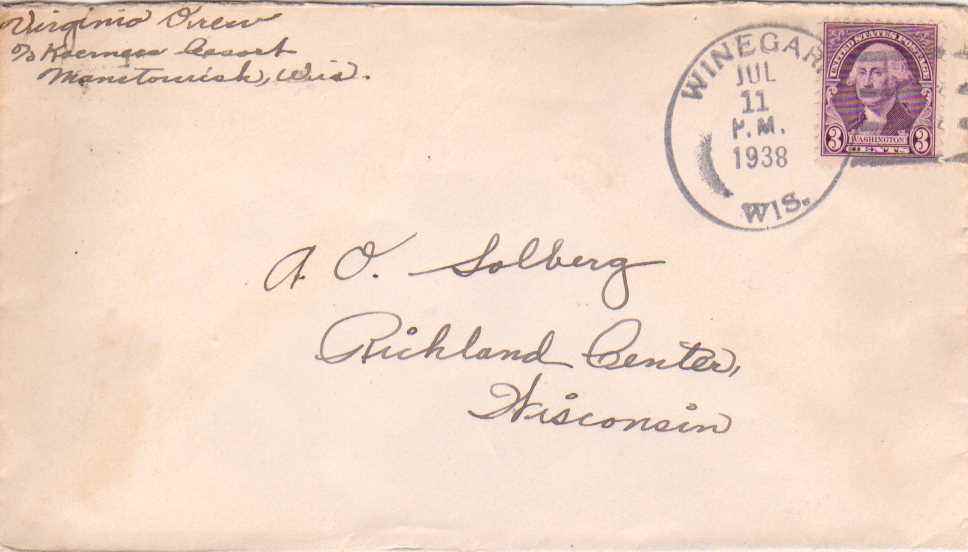 Virginia Drew
% Resort
Manitowish, Wis.
WINEGAR
JUL
11
P.M.
1938
WIS.
UNITED STATES POSTAGE
3 WASHINGTON 3
CENTS
A. O. Solberg
Richland Center,
Wisconsin